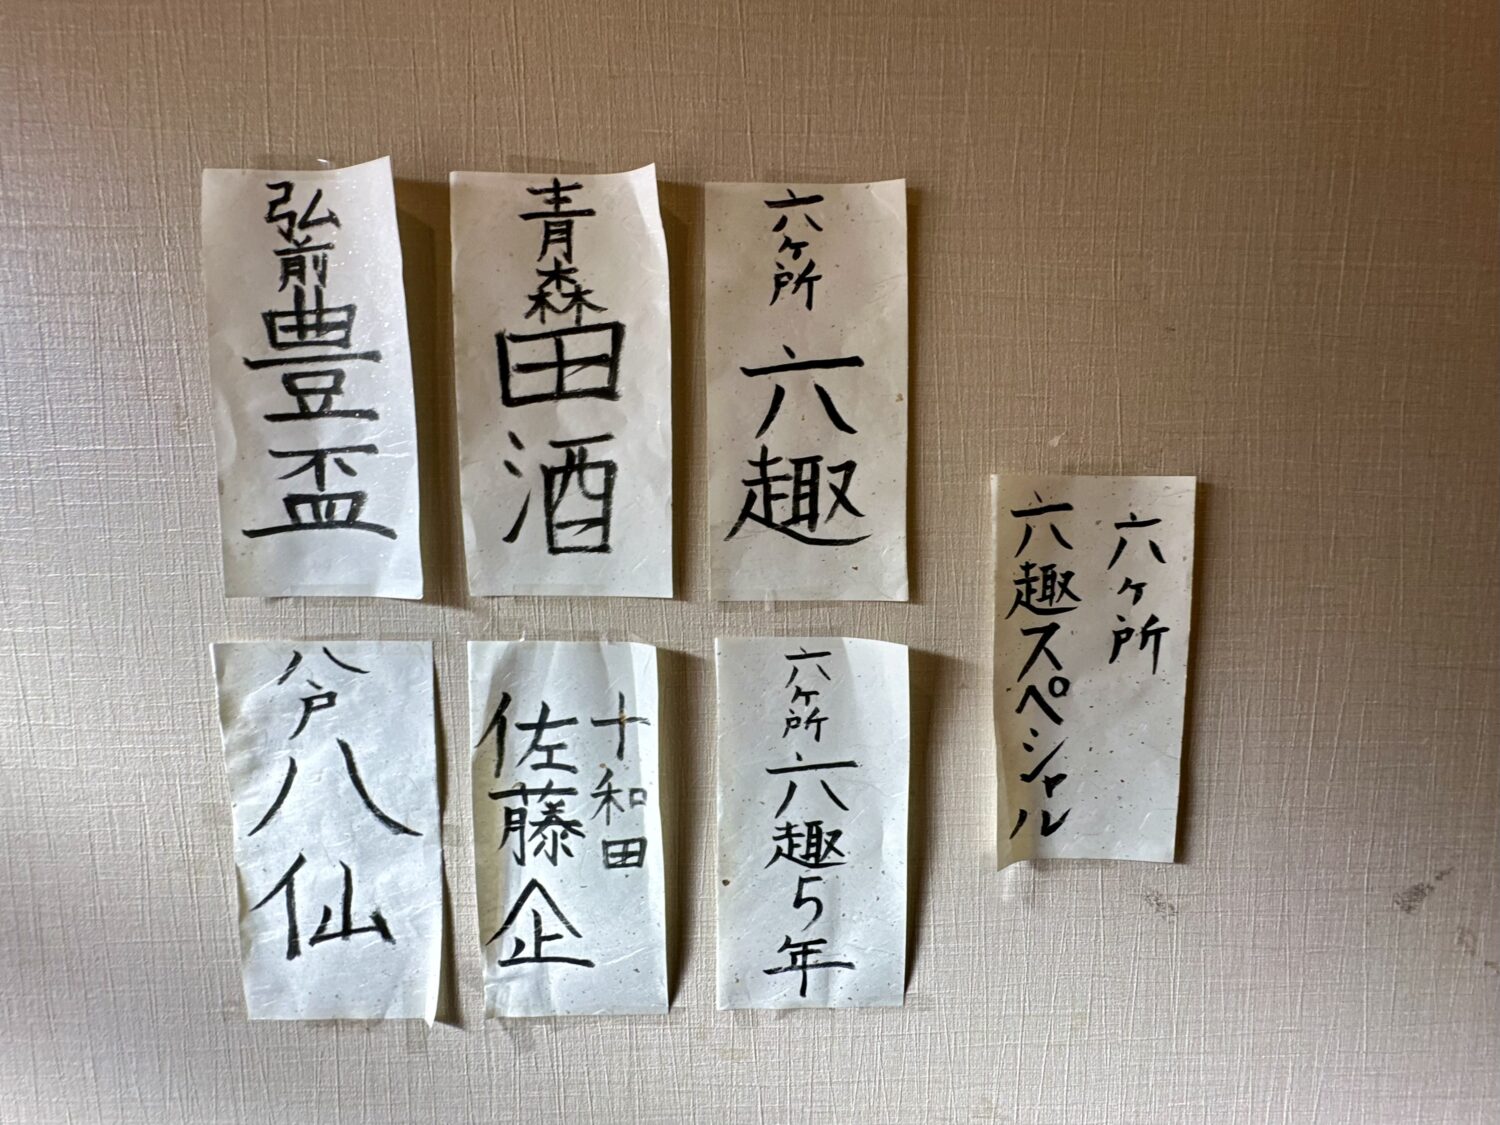 弘前
豊盃
青森
田酒
六ヶ所
六趣
八戸
八仙
十和田
佐藤企
六ヶ所
六趣5年
六ヶ所
六趣スペシャル